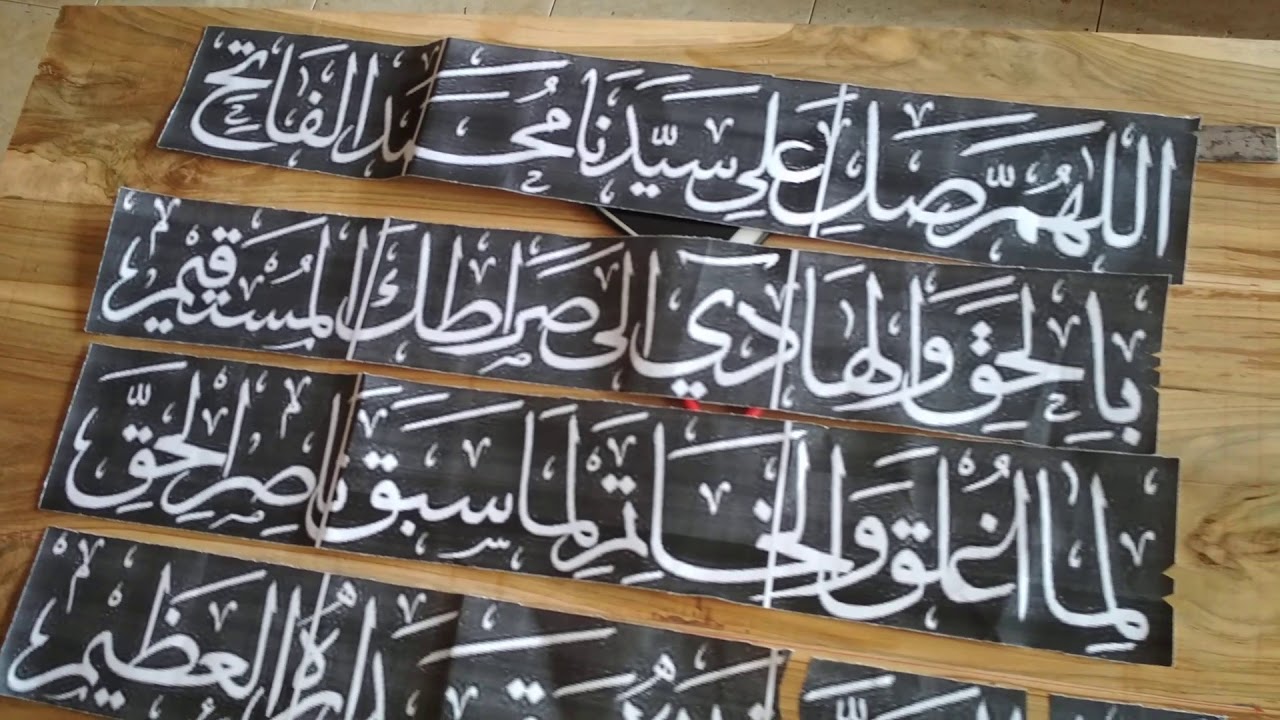 اللهم صل على سيدنا محمد الفاتح
لما اغلق والخاتم لما سبق ناصر الحق
بالحق والهادي الى صراطك المستقيم
العظيم